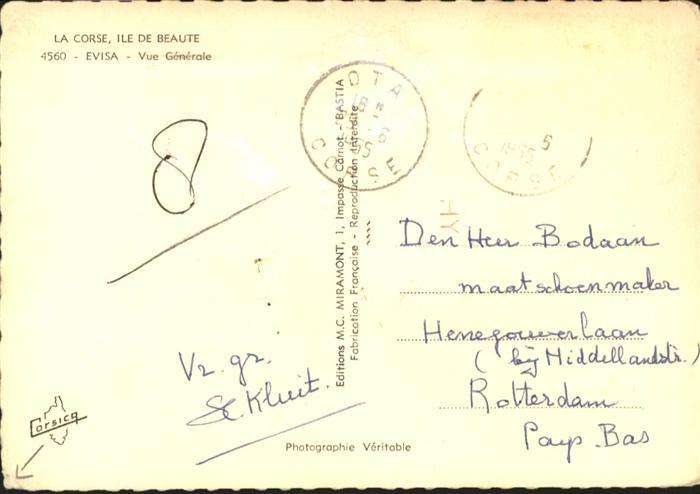 LA CORSE, ILE DE BEAUTE
4560 - EVISA - Vue Générale
OTA
CORSE
CORSE
8
Editions M.C. MIRAMONT, 1, Impasse Carriot - BASTIA
Fabrication Française - Reproduction Interdite
Den Heer Bodaan
maatschoenmaker
Henegouwerlaan
( bij Middellandstr.)
Rotterdam
Pays-Bas
Vr. gr.
Kluit.
Corsica
Photographie Véritable